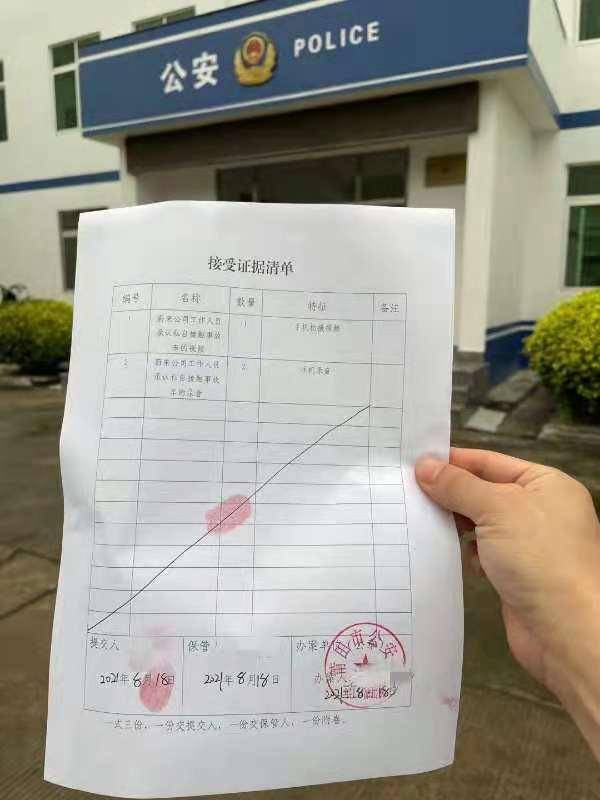 公安 POLICE
接受证据清单
编号 名称 数量 特征 备注
1 蔚来公司工作人员 1 手机拍摄视频
承认私自接触事故
车的视频
2 蔚来公司工作人员 2 手机录音
承认私自接触事故
车的录音
提交人 保管 办案单位
办案人
2021年8月18日 2021年8月18日 2021年8月18日
莆田市公安
一式三份，一份交提交人，一份交保管人，一份附卷。